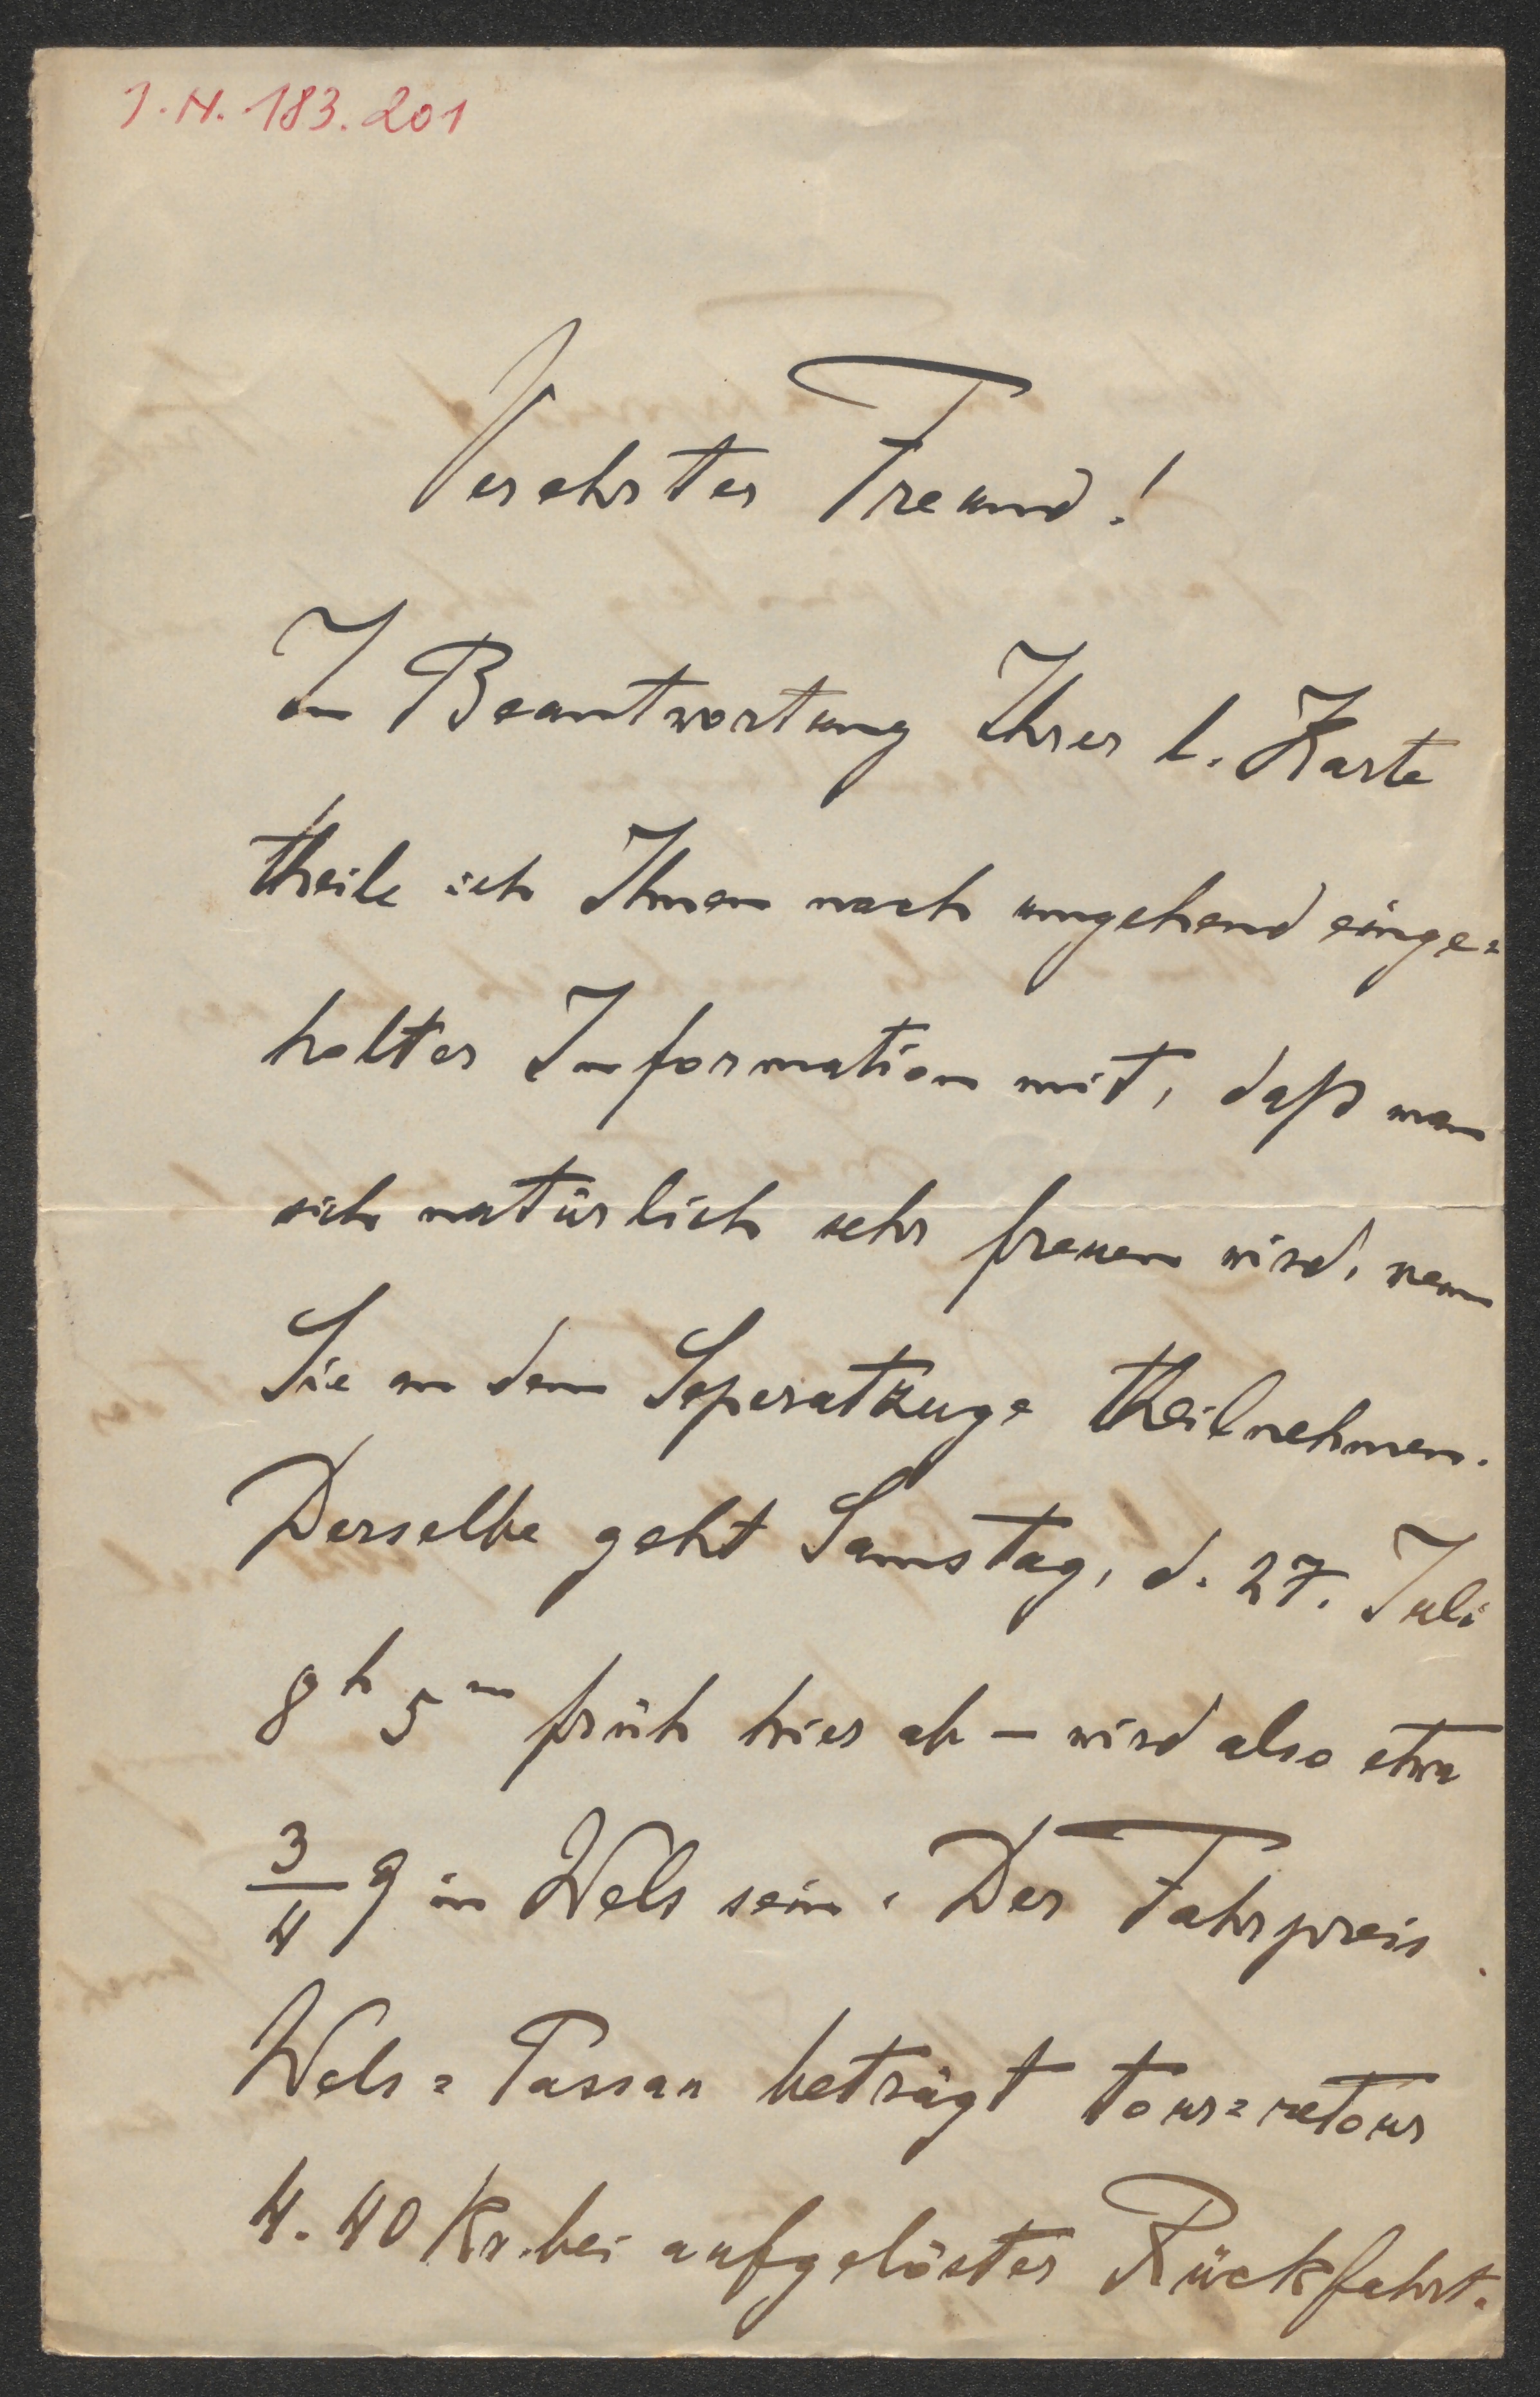 I.N. 183.201
Verehrter Freund!
In Beantwortung Ihrer l. Karte
theile ich Ihnen nach umgehend einge=
holter Information mit, daß man
sich natürlich sehr freuen wird, wenn
Sie an dem Seperatzuge theilnehmen.
Derselbe geht Samstag, d. 27. Juli
8h 5m früh hier ab – wird also etwa
3/4 9 in Wels sein. Der Fahrpreis
Wels=Passau beträgt tour=retour
4.40 Kr. bei aufgelöster Rückfahrt.